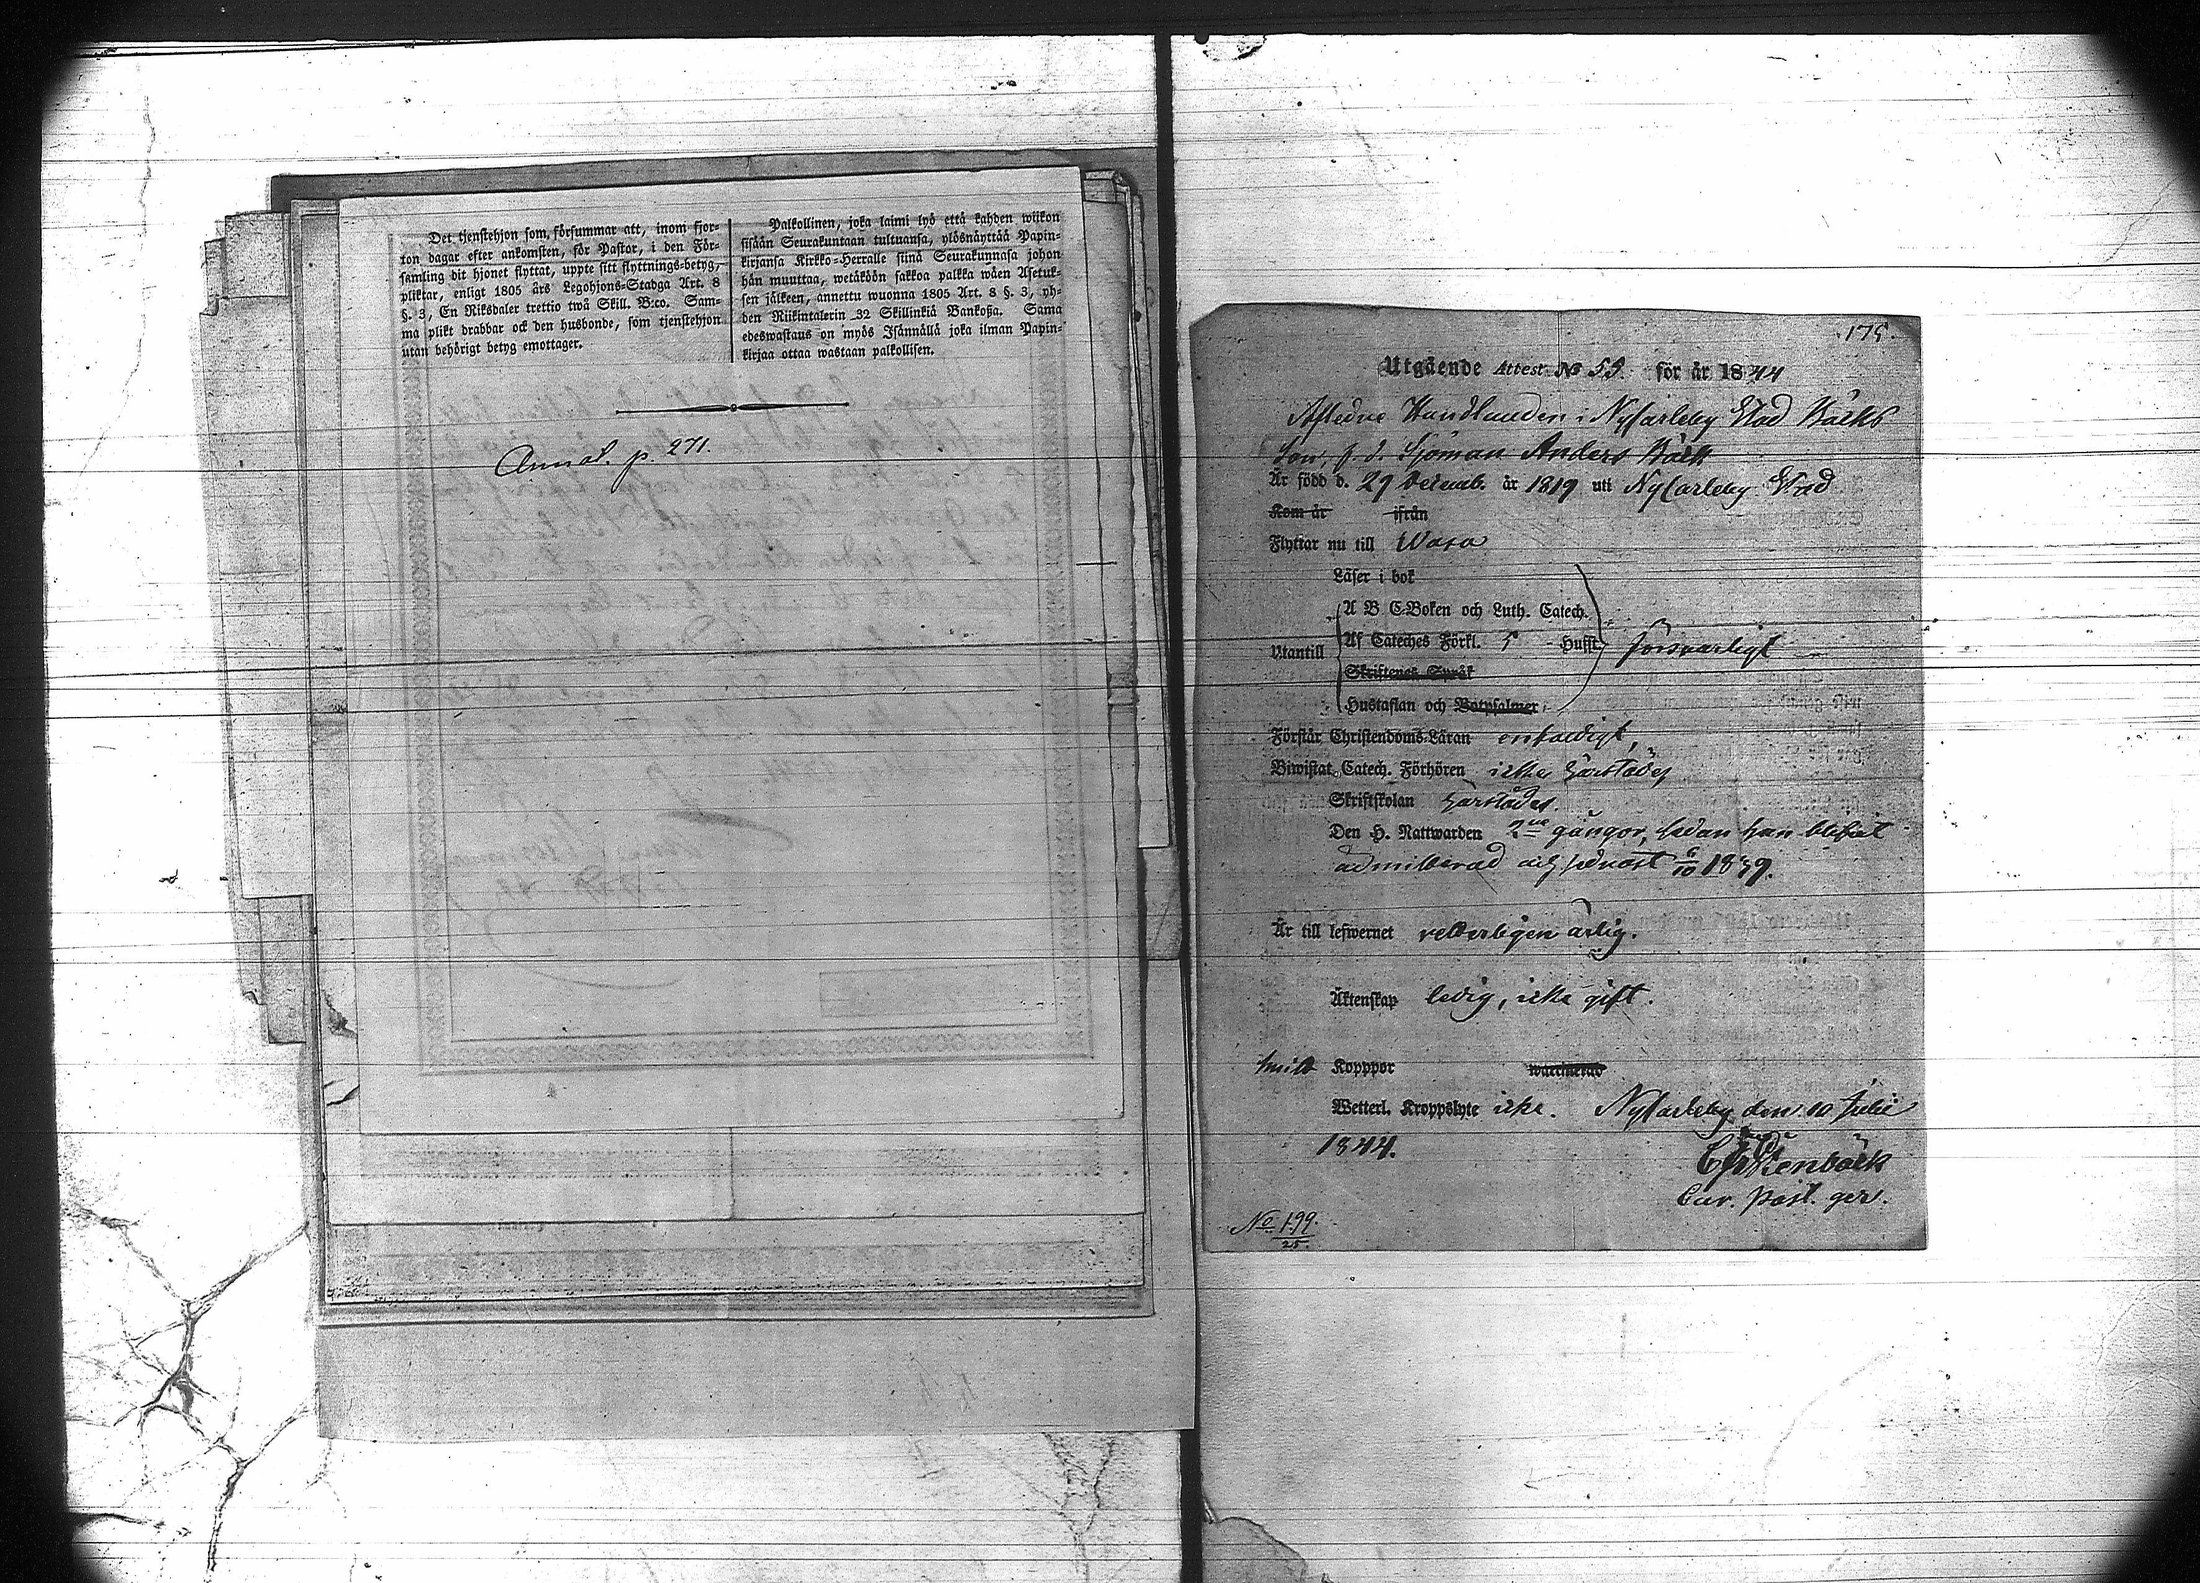 Det tjenstehjon som, försummar att, inom fjor-
ton dagar efter ankomsten, för Pastor, i den För-
samling dit hjonet flyttat, uppte sitt flyttnings-betyg,
pliktar, enligt 1805 års Legohjons-Stadga Art. 8
§. 3, En Riksdaler trettio twå Skill. B:co. Sam-
ma plikt drabbar ock den husbonde, som tjenstehjon
utan behörigt betyg emottager.
Palkollinen, joka laimi lyö että kahden wiikon
sisään Seurakuntaan tultuansa, ylösnäyttää Papin-
kirjansa Kirkko-Herralle siinä Seurakunnasa johon
hän muuttaa, wetäköön sakkoa palkka wäen Asetuk-
sen jälkeen, annettu wuonna 1805 Art. 8 §. 3, yh-
den Riikintalerin 32 Skillinkiä Bankoßa. Sama
edeswastaus on myös Isännällä joka ilman Papin-
kirjaa ottaa wastaan palkollisen.
Annot. p. 271.
175.
Utgående Attest No 59. för år 1844
Afledne Handlanden i Nycarleby Stad Bäcks
Son, f. d. Sjöman Anders Bäck
Är född d. 29 Decemb. år 1819 uti Nycarleby Stad
Kom år ifrån
Flyttar nu till Wasa
Läser i bok
A B C-Boken och Luth. Catech.
Utantill Af Cateches Förkl. 5 Hufst. försvarligt
Skriftenes Språk
Hustaflan och Botpsalmer
Förstår Christendoms-Läran enfaldigt,
Biwistat Catech. Förhören icke härstädes
Skriftskolan härstädes.
Den H. Nattwarden 2ne gångor, sedan han blifvit
admitterad och sednast 6/10 1839.
Är till lefwernet veterligen ärlig.
Äktenskap ledig, icke gift.
haft Kopppor waccinerad
Wetterl. Kroppslyte icke. Nycarleby den 10 Julii
1844.
Cur. Past. ger.
No 199.
25.